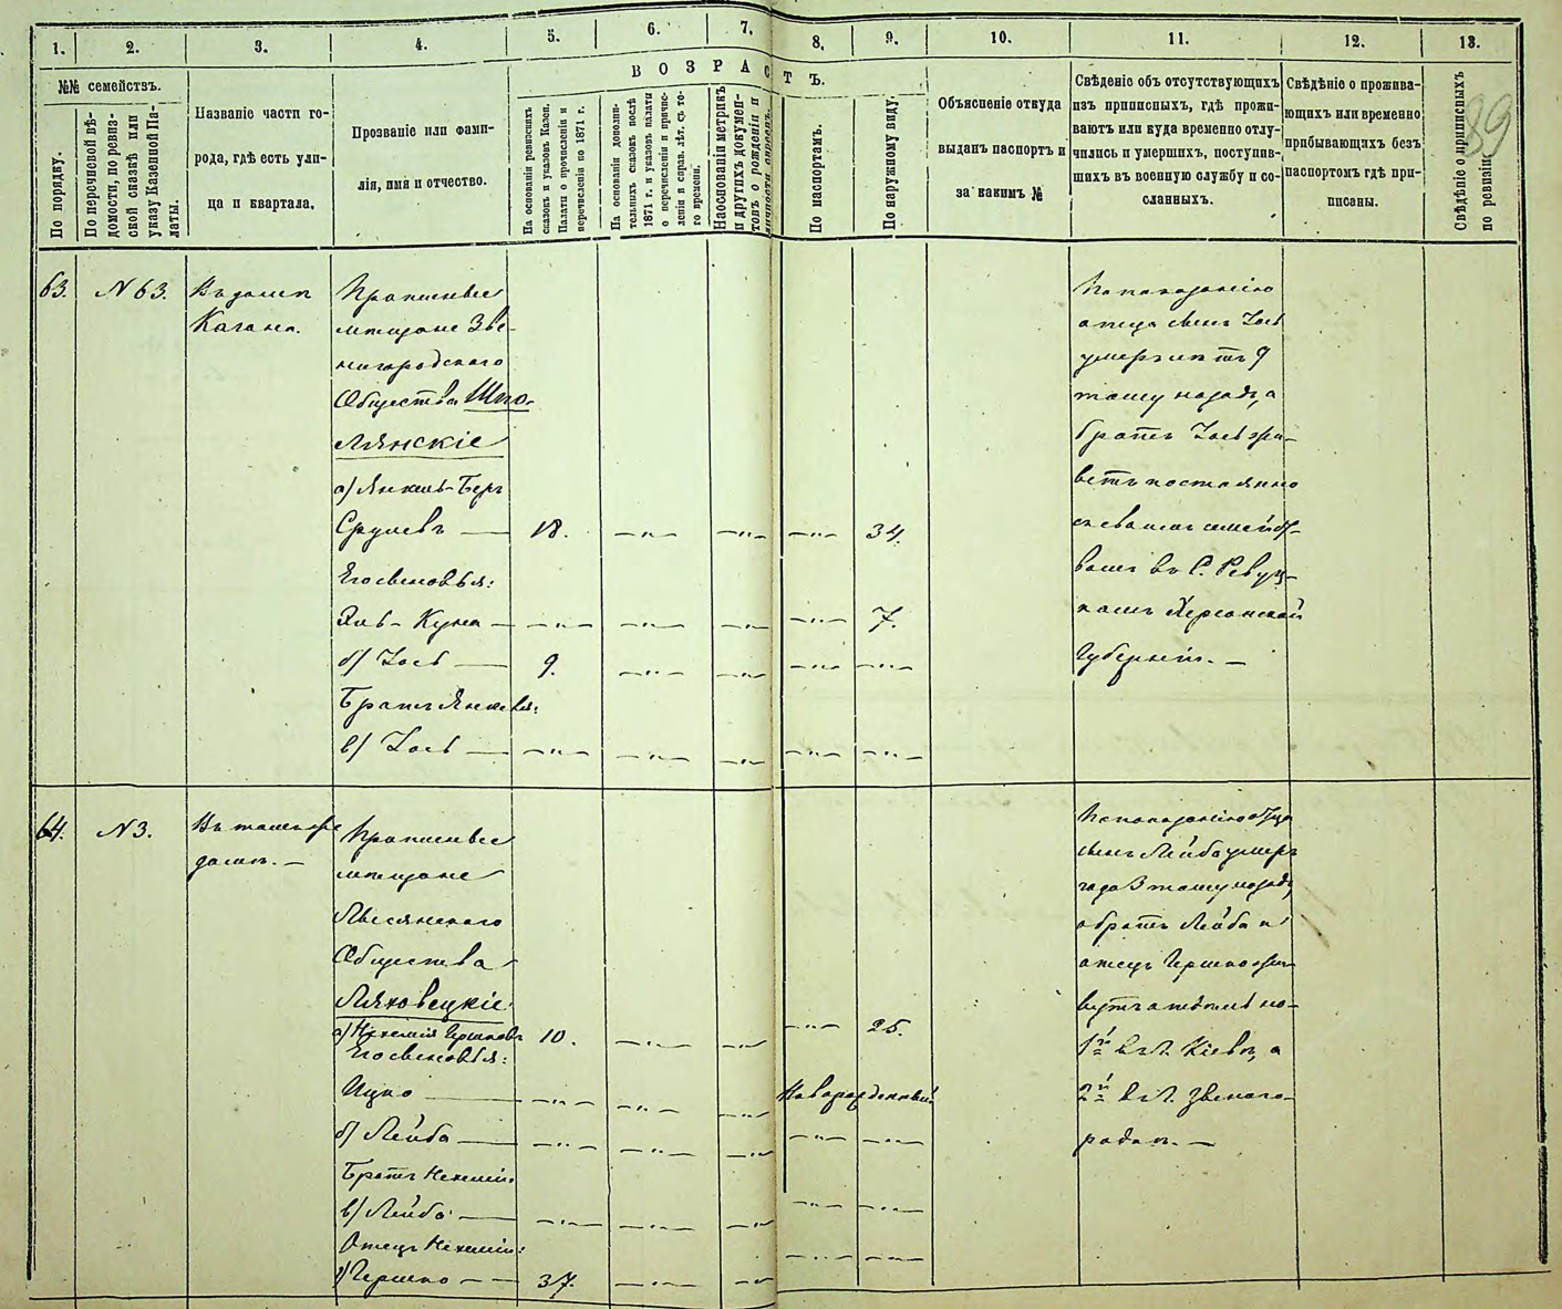 1. 2. 3. 4. 5. 6. 7. 8. 9. 10. 11. 12. 13.
№№ семействъ.
По порядку.
По перечневой вѣ-
домости, по ревиз-
ской сказкѣ или
указу Казенной Па-
латы.
Названіе части го-
рода, гдѣ есть ули-
ца и квартала.
Прозваніе или фами-
лія, имя и отчество.
ВОЗРАСТЪ.
На основаніи ревизскихъ
сказокъ и указовъ Казен.
Палати о прочисленіи и
перечисленіи по 1871 г.
На основаніи дополни-
тельныхъ сказокъ послѣ
1871 г. и указовъ палати
о перечисленіи и причис-
леніи и справ. лѣт. съ то-
го времени.
На основаніи метрикъ
и другихъ докумен-
товъ о рожденіи и
личности опредѣ.
По паспортамъ.
По наружному виду.
Объясненіе откуда
выданъ паспортъ и
за какимъ №
Свѣденіе объ отсутствующихъ
изъ приписныхъ, гдѣ прожи-
ваютъ или куда временно отлу-
чились и умершихъ, поступив-
шихъ въ военную службу и со-
сланныхъ.
Свѣдѣніе о прожива-
ющихъ или временно
прибывающихъ безъ
паспортомъ гдѣ при-
писаны.
Свѣдѣніе о приписныхъ
по ревизіи
89
63. N 63. Въ домѣ
Кагана.
Приписные
мѣщане Зве-
нигородскаго
Общества Шпо-
лянскіе
а) Янкель-Берг
Срулевъ — 18. —"— —"— —"— 34.
Его сыновья:
— —"— —"— —"— —"— 7.
б) Іось — 9. —"— —"— —"— —"—
Братъ Янкеля:
в) Іось — —"— —"— —"— —"— —"—
По показанію
отца сынъ Іось
умеръ лѣтъ 9
тому назадъ, а
братъ Іось жи-
ветъ постоянно
съ своимъ семей-
ствомъ въ С.
Херсонской
Губерніи. —
64. N 3. Въ томъ же
домѣ. —
Приписные
мѣщане
Лысянскаго
Общества
Ляховецкіе:
а) Нехемія Гершковъ 10. —"— —"— —"— 25.
Его сыновья:
Ицко — —"— —"— —"— Новорожденный
б) Лейба — —"— —"— —"— —"— —"—
Братъ Нехеміи:
в) Лейба — —"— —"— —"— —"— —"—
Отецъ Нехеміи:
г) Гершко — 37. —"— —"— —"— —"—
По показанію отца
сынъ Лейба умеръ
года 3 тому назадъ,
а братъ Лейба и
отецъ Гершко жи-
вутъ
1й въ г. Кіевѣ, а
2й въ г. Звениго-
родкѣ. —